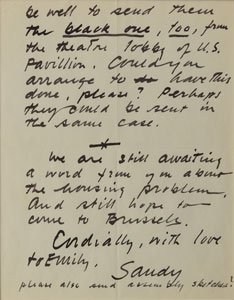 be well to send them
the black one, too, from
the theatre lobby of U.S.
Pavillion. Could you
arrange to have this
done, please? Perhaps
they could be sent in
the same case.
We are still awaiting
a word from you about
the housing problem.
And still hope to
come to Brussels.
Cordially, with love
to Emily.
Sandy
please also send assembly sketches!